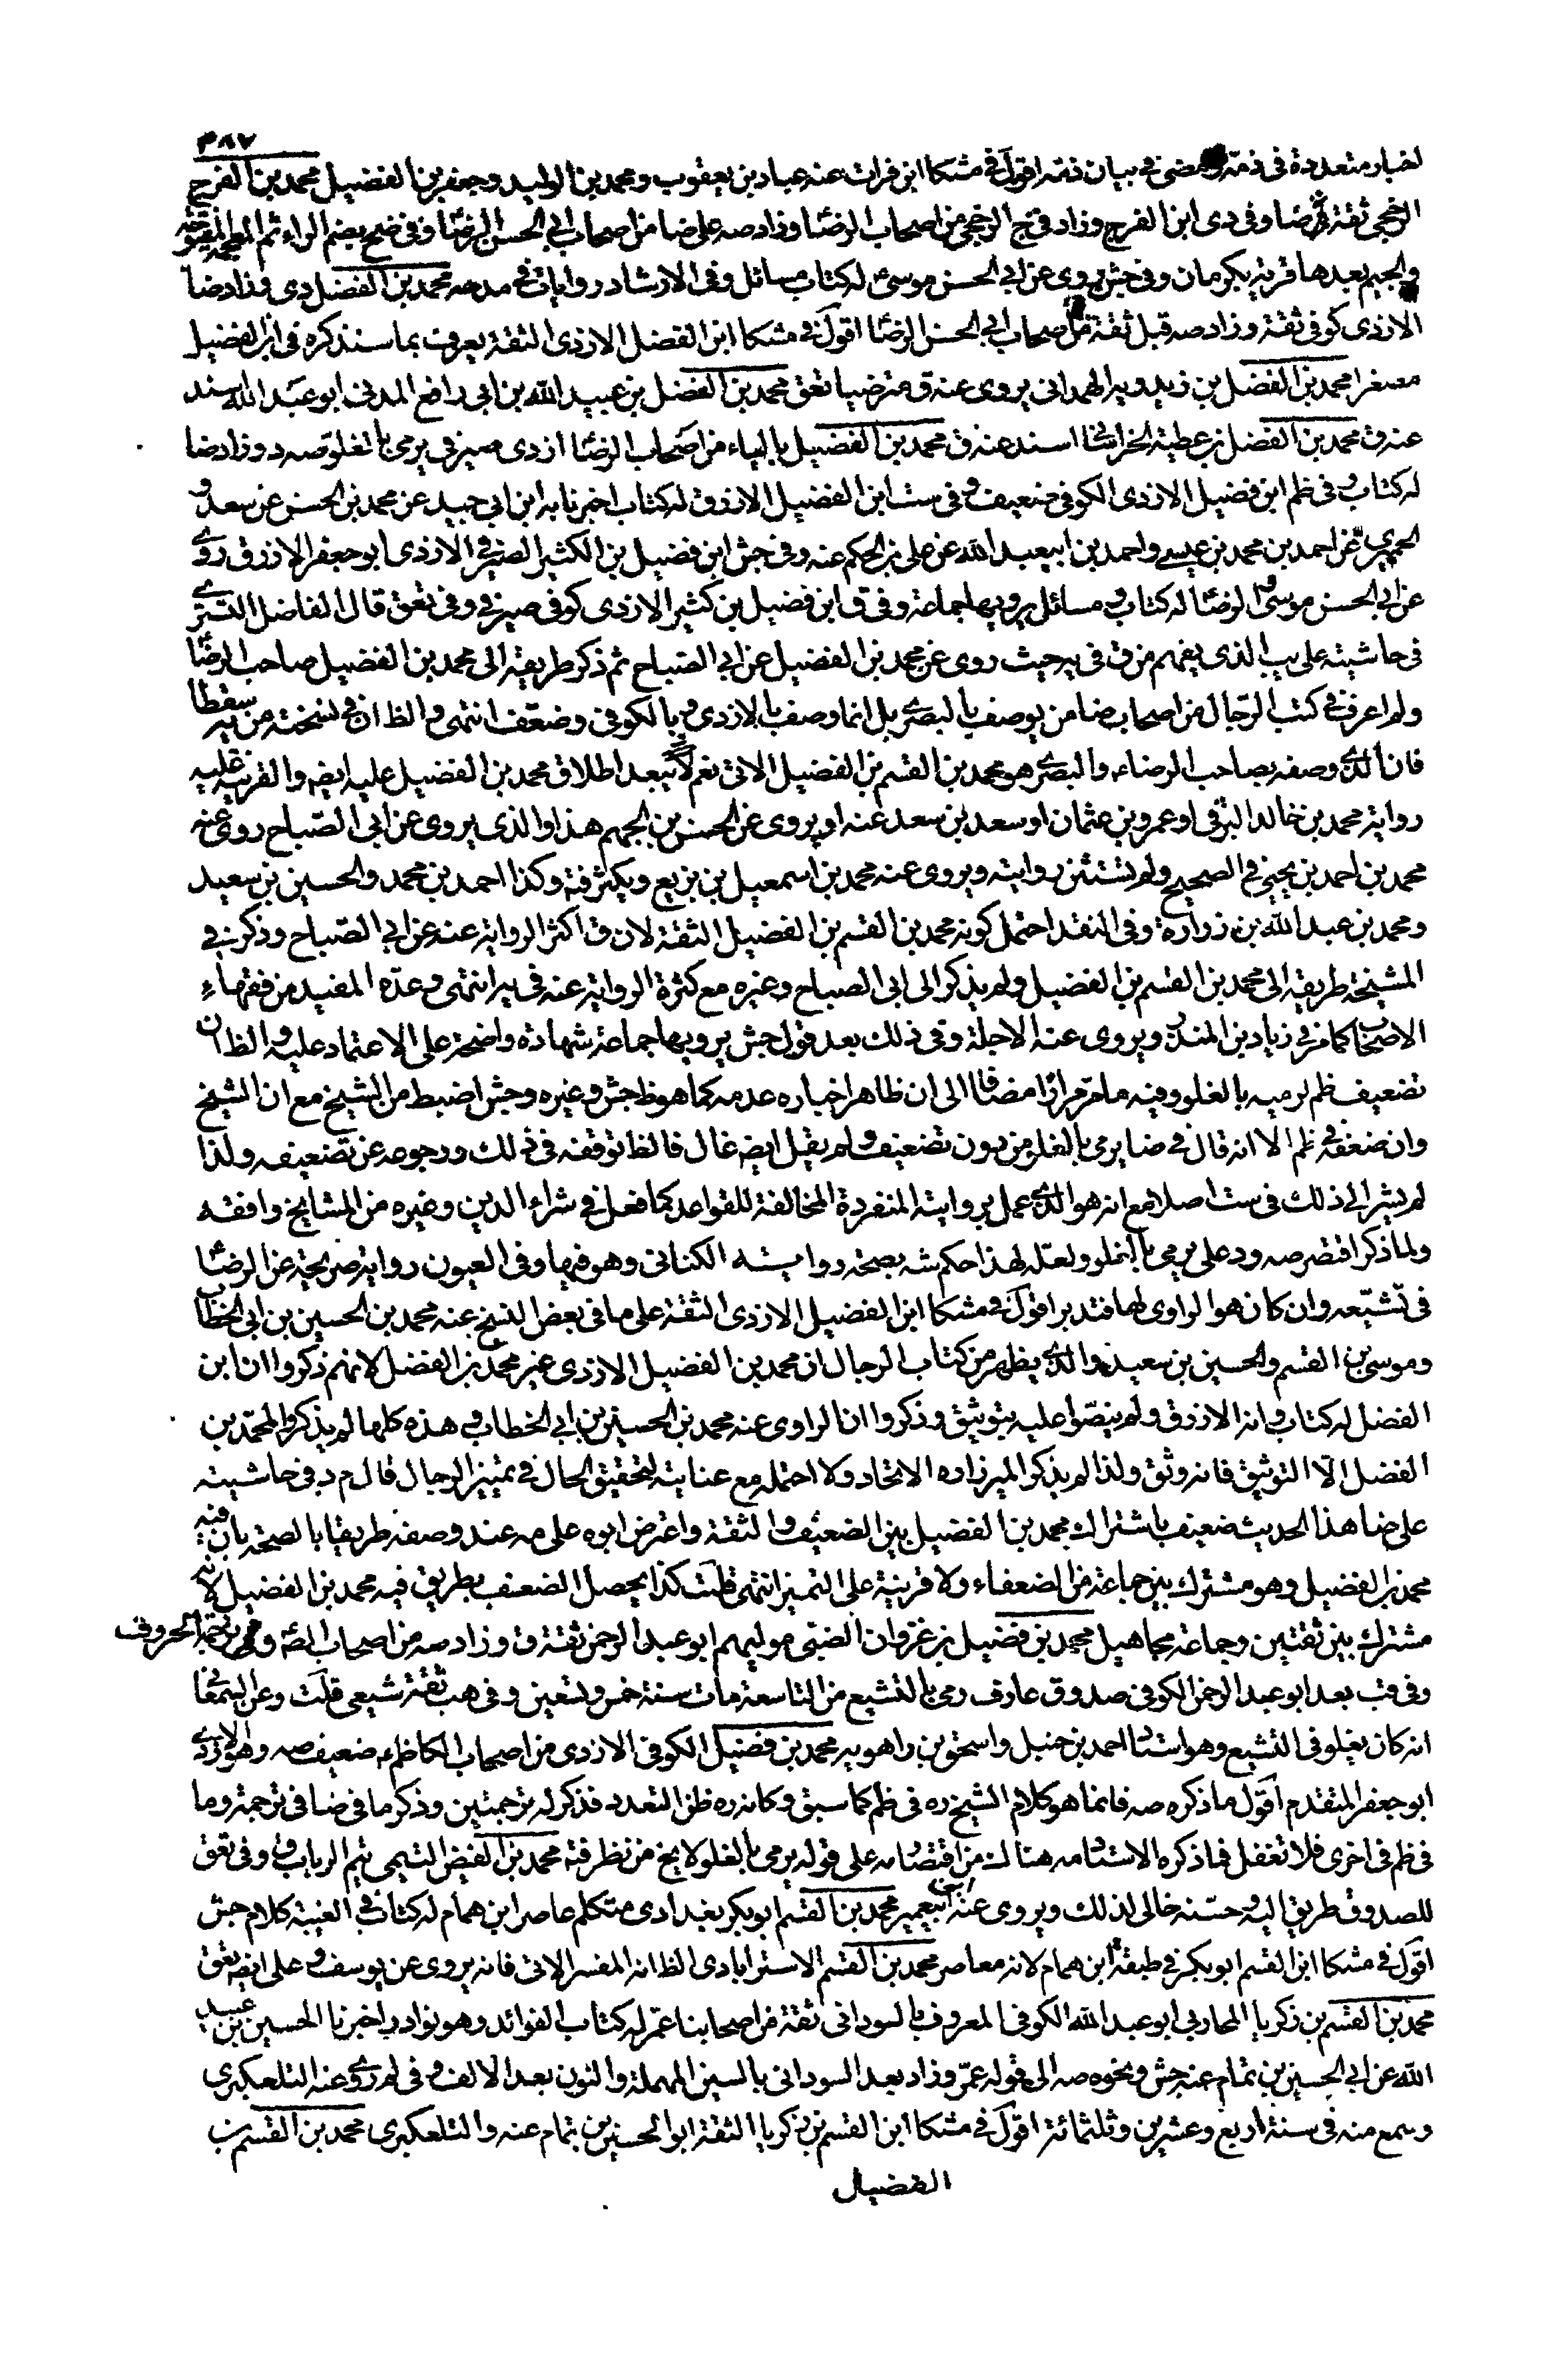 ٣٨٧
اخبار متعددة فى ذمّه ومضى فى بيان ذمّه اقول فى مشكا ابن فرات عنه عباد بن يعقوب ومحمد بن الوليد وجعفر بن الفضيل محمد بن الفرج
الرخجى ثقة ضا وفى دى ابن الفرج وزاد فى ج الرخجى من اصحاب الرضا وزاد صه على ضا من اصحاب ابى الحسن الرضا وفى ضح بضم الراء ثم المعجمة المفتوحة
والجيم بعدها قرية بكرمان وفى جش روى عن ابى الحسن موسى له كتاب مسائل وفى الارشاد روايات فى مدحه محمد بن الفضل دى وزاد ضا
الازدى كوفى ثقة وزاد صه قبل ثقة من اصحاب ابى الحسن الرضا اقول فى مشكا ابن الفضل الازدى الثقة يعرف بما سنذكره فى ابن الفضيل
مصغرا محمد بن الفضل بن زيدويه الهمدانى يروى عنه ق مترضيا تعق محمد بن الفضل بن عبيد الله بن ابى رافع المدنى ابو عبد الله اسند
عنه ق محمد بن الفضل بن عطية الخراسانى اسند عنه ق محمد بن الفضيل بالياء من اصحاب الرضا ازدى صيرفى يرمى بالغلو صه د وزاد ضا
له كتاب وفى ظم ابن فضيل الازدى الكوفى ضعيف وفى ست ابن الفضيل الازرق له كتاب اخبرنا به ابن ابى جيد عن محمد بن الحسن عن سعد و
الحميرى عن احمد بن محمد بن عيسى واحمد بن ابيعبد الله عن على بن الحكم عنه وفى جش ابن فضيل بن الكثير الصيرفى الازدى ابو جعفر الازرق روى
عن ابى الحسن موسى والرضا له كتاب ومسائل يرويها جماعة وفى ق ابن فضيل بن كثير الازدى كوفى صيرفى وفى تعق قال الفاضل التسترى
فى حاشيته على يب الذى يفهم من ق فى يه حيث روى عن محمد بن الفضيل عن ابى الصباح ثم ذكر طريقه الى محمد بن الفضيل صاحب الرضا
ولم اعرف فى كتب الرجال من اصحاب ضا من يوصف بالبصرى بل انما وصف بالازدى وبالكوفى وضعّف انتهى والظ ان فى نسخته من يه سقطا
فان الذى وصفه بصاحب الرضاء والبصرى هو محمد بن القسم بن الفضيل الاتى نعم لا يبعد اطلاق محمد بن الفضيل عليه ايضا والقرينة عليه
رواية محمد بن خالد البرقى او عمرو بن عثمان او سعد بن سعد عنه او يروى عن الحسن بن الجهم هذا والذى يروى عن ابى الصباح روى عنه
محمد بن احمد بن يحيى فى الصحيح ولم تستثن روايته ويروى عنه محمد بن اسمعيل بن بزيع ويكثر فة وكذا احمد بن محمد والحسين بن سعيد
ومحمد بن عبد الله بن زرارة وفى النقد احتمل كونه محمد بن القسم بن الفضيل الثقة لان ق اكثر الرواية عنه عن ابى الصباح وذكر فى
المشيخة طريقه الى محمد بن القسم بن الفضيل ولم يذكر الى ابى الصباح وغيره مع كثرة الرواية عنه فى يه انتهى وعدّه المفيد من فقهاء
الاصحاب كما مر فى زياد بن المنذر ويروى عنه الاجلة وفى ذلك بعد قول جش يرويها جماعة شهادة واضحة على الاعتماد عليه والظ ان
تضعيف ظم لرميه بالغلو وفيه ما مر مرارا مضافا الى ان ظاهر اخباره عدمه كما هو ظ جش وغيره وجش اضبط من الشيخ مع ان الشيخ
وان ضعفه فى ظم الا انه قال فى ضا يرمى بالغلو من دون تضعيف ولم يقل ايضه غال فالظ توقفه فى ذلك ورجوعه عن تضعيفه ولذا
لم يشر الى ذلك فى ست اصلا مع انه هو الذى عمل بروايته المنفردة المخالفة للقواعد كما فعل فى شراء الدين وغيره من المشايخ وافقه
ولما ذكر اقتصر صه ود على يرمى بالغلو ولعلّه لهذا حكم شه بصحة رواية الكنانى وهو فيها وفى العيون رواية صريحة عن الرضا
فى تشيّعه وان كان هو الراوى لها فتدبر اقول فى مشكا ابن الفضيل الازدى الثقة على ما فى بعض النسخ عنه محمد بن الحسين بن ابى الخطاب
وموسى بن القسم والحسين بن سعيد والذى يظهر من كتاب الرجال ان محمد بن الفضيل الازدى غير محمد بن الفضل لانهم ذكروا ان ابن
الفضل له كتاب وانه الازرق ولم ينصّوا عليه بتوثيق وذكروا ان الراوى عنه محمد بن الحسين بن ابى الخطاب وهذه كلها لم يذكروا لمحمّد بن
الفضل الا التوثيق فانه وثق ولذا لم يذكر الميرزا ره الاتحاد ولا احتمله مع عنايته لتحقيق الحال فى تمييز الرجال قال م د فى حاشيته
على ضا هذا الحديث ضعيف باشتراك محمد بن الفضيل بين الضعيف والثقة واعترض ابوه على مه عند وصفه طريقا بالصحة بان فيه
محمد بن الفضيل وهو مشترك بين جماعة من الضعفاء ولا قرينة على التميز انتهى قلت كذا يحصل الضعف بطريق فيه محمد بن الفضيل لانه
مشترك بين ثقتين وجماعة مجاهيل محمد بن فضيل بن غزوان الضبى موليهم ابو عبد الرحمن ثقة ق وزاد صه من اصحاب الص وترجمة الحروف
وفى قب بعد ابو عبد الرحمن الكوفى صدوق عارف رمى بالتشيع من التاسعة مات سنة خمس وتسعين وفى هب ثقة شيعى قلت وعن السمعانى
انه كان يغلو فى التشيع وهو استاد احمد بن حنبل واسحق بن راهويه محمد بن فضيل الكوفى الازدى من اصحاب الكاظم ضعيف صه وهو الازدى
ابو جعفر المتقدم اقول ما ذكره صه فانما هو كلام الشيخ ره فى ظم كما سبق وكانه ره ظن التعدد فذكر له ترجمتين وذكر ما فى ضا فى ترجمة وما
فى ظم فى اخرى فلا تغفل فما ذكره الاستاد مه هناك من اقتصاره على قوله يرمى بالغلو لا يخ من نظر فة محمد بن الفيض التيمى تيم الرباب ق وفى تعق
للصدوق طريق اليه وحسّنه خالى لذلك ويروى عنه ابن ابيعمير محمد بن القسم ابو بكر بغدادى متكلم عاصر ابن همام له كتاب فى الغيبة كلام جش
اقول فى مشكا ابن القسم ابو بكر فى طبقة ابن همام لانه معاصره محمد بن القسم الاسترابادى الظ انه المفسر الاتى فانه يروى عن يوسف وعلى ايضه تعق
محمد بن القسم بن زكريا المحاربى ابو عبد الله الكوفى المعروف بالسودانى ثقة من اصحابنا عمّر له كتاب الفوائد وهو نوادر اخبرنا الحسين بن عبيد
الله عن ابى الحسين بن تمام عنه جش ونحوه صه الى قوله عمّر وزاد بعد السودانى بالسين المهملة والنون بعد الالف وفى لم روى عنه التلعكبرى
وسمع منه فى سنة اربع وعشرين وثلثمائة اقول فى مشكا ابن القسم بن زكريا الثقة ابو الحسين بن تمام عنه والتلعكبرى محمد بن القسم بن
الفضيل